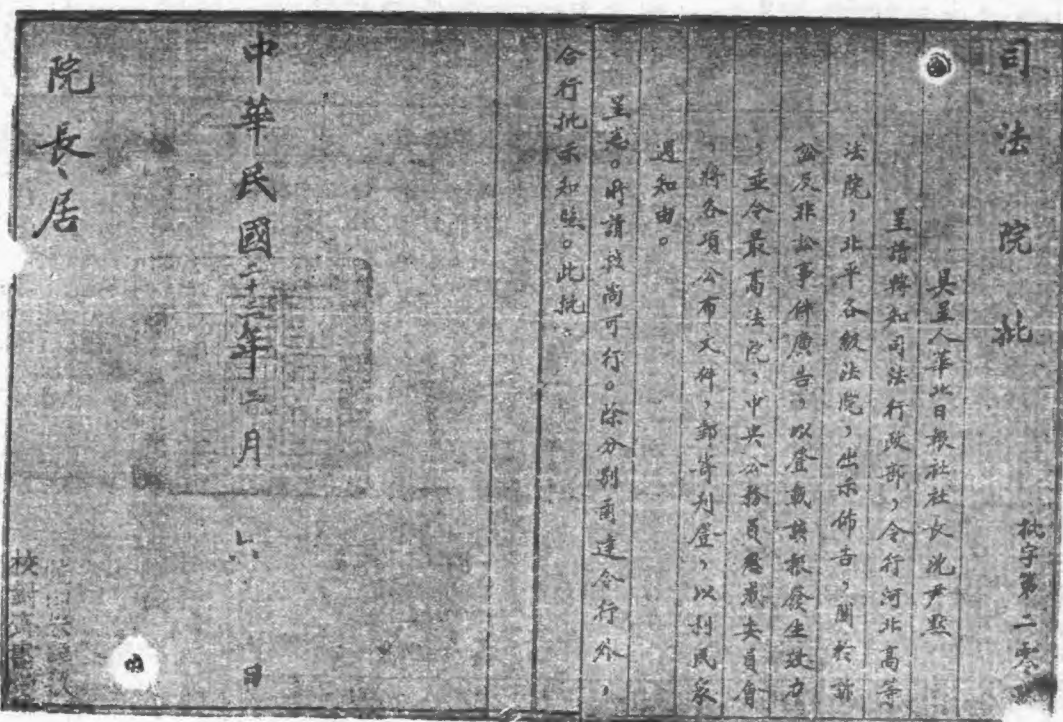 司法院批
批字第二零
具呈人華北日報社社長沈尹默
呈請轉知司法行政部,令行河北高等
法院,北平各級法院,出示佈告,關於訴
訟及非訟事件廣告,以登載該報發生效力
,並令最高法院,中央公務員懲戒委員會
,將各項公布文件,郵寄刊登,以利民衆
週知由。
呈悉。所請核尚可行。除分別函達令行外,
合行批示知照。此批。
中華民國二十二年二月六日
院長居
校對